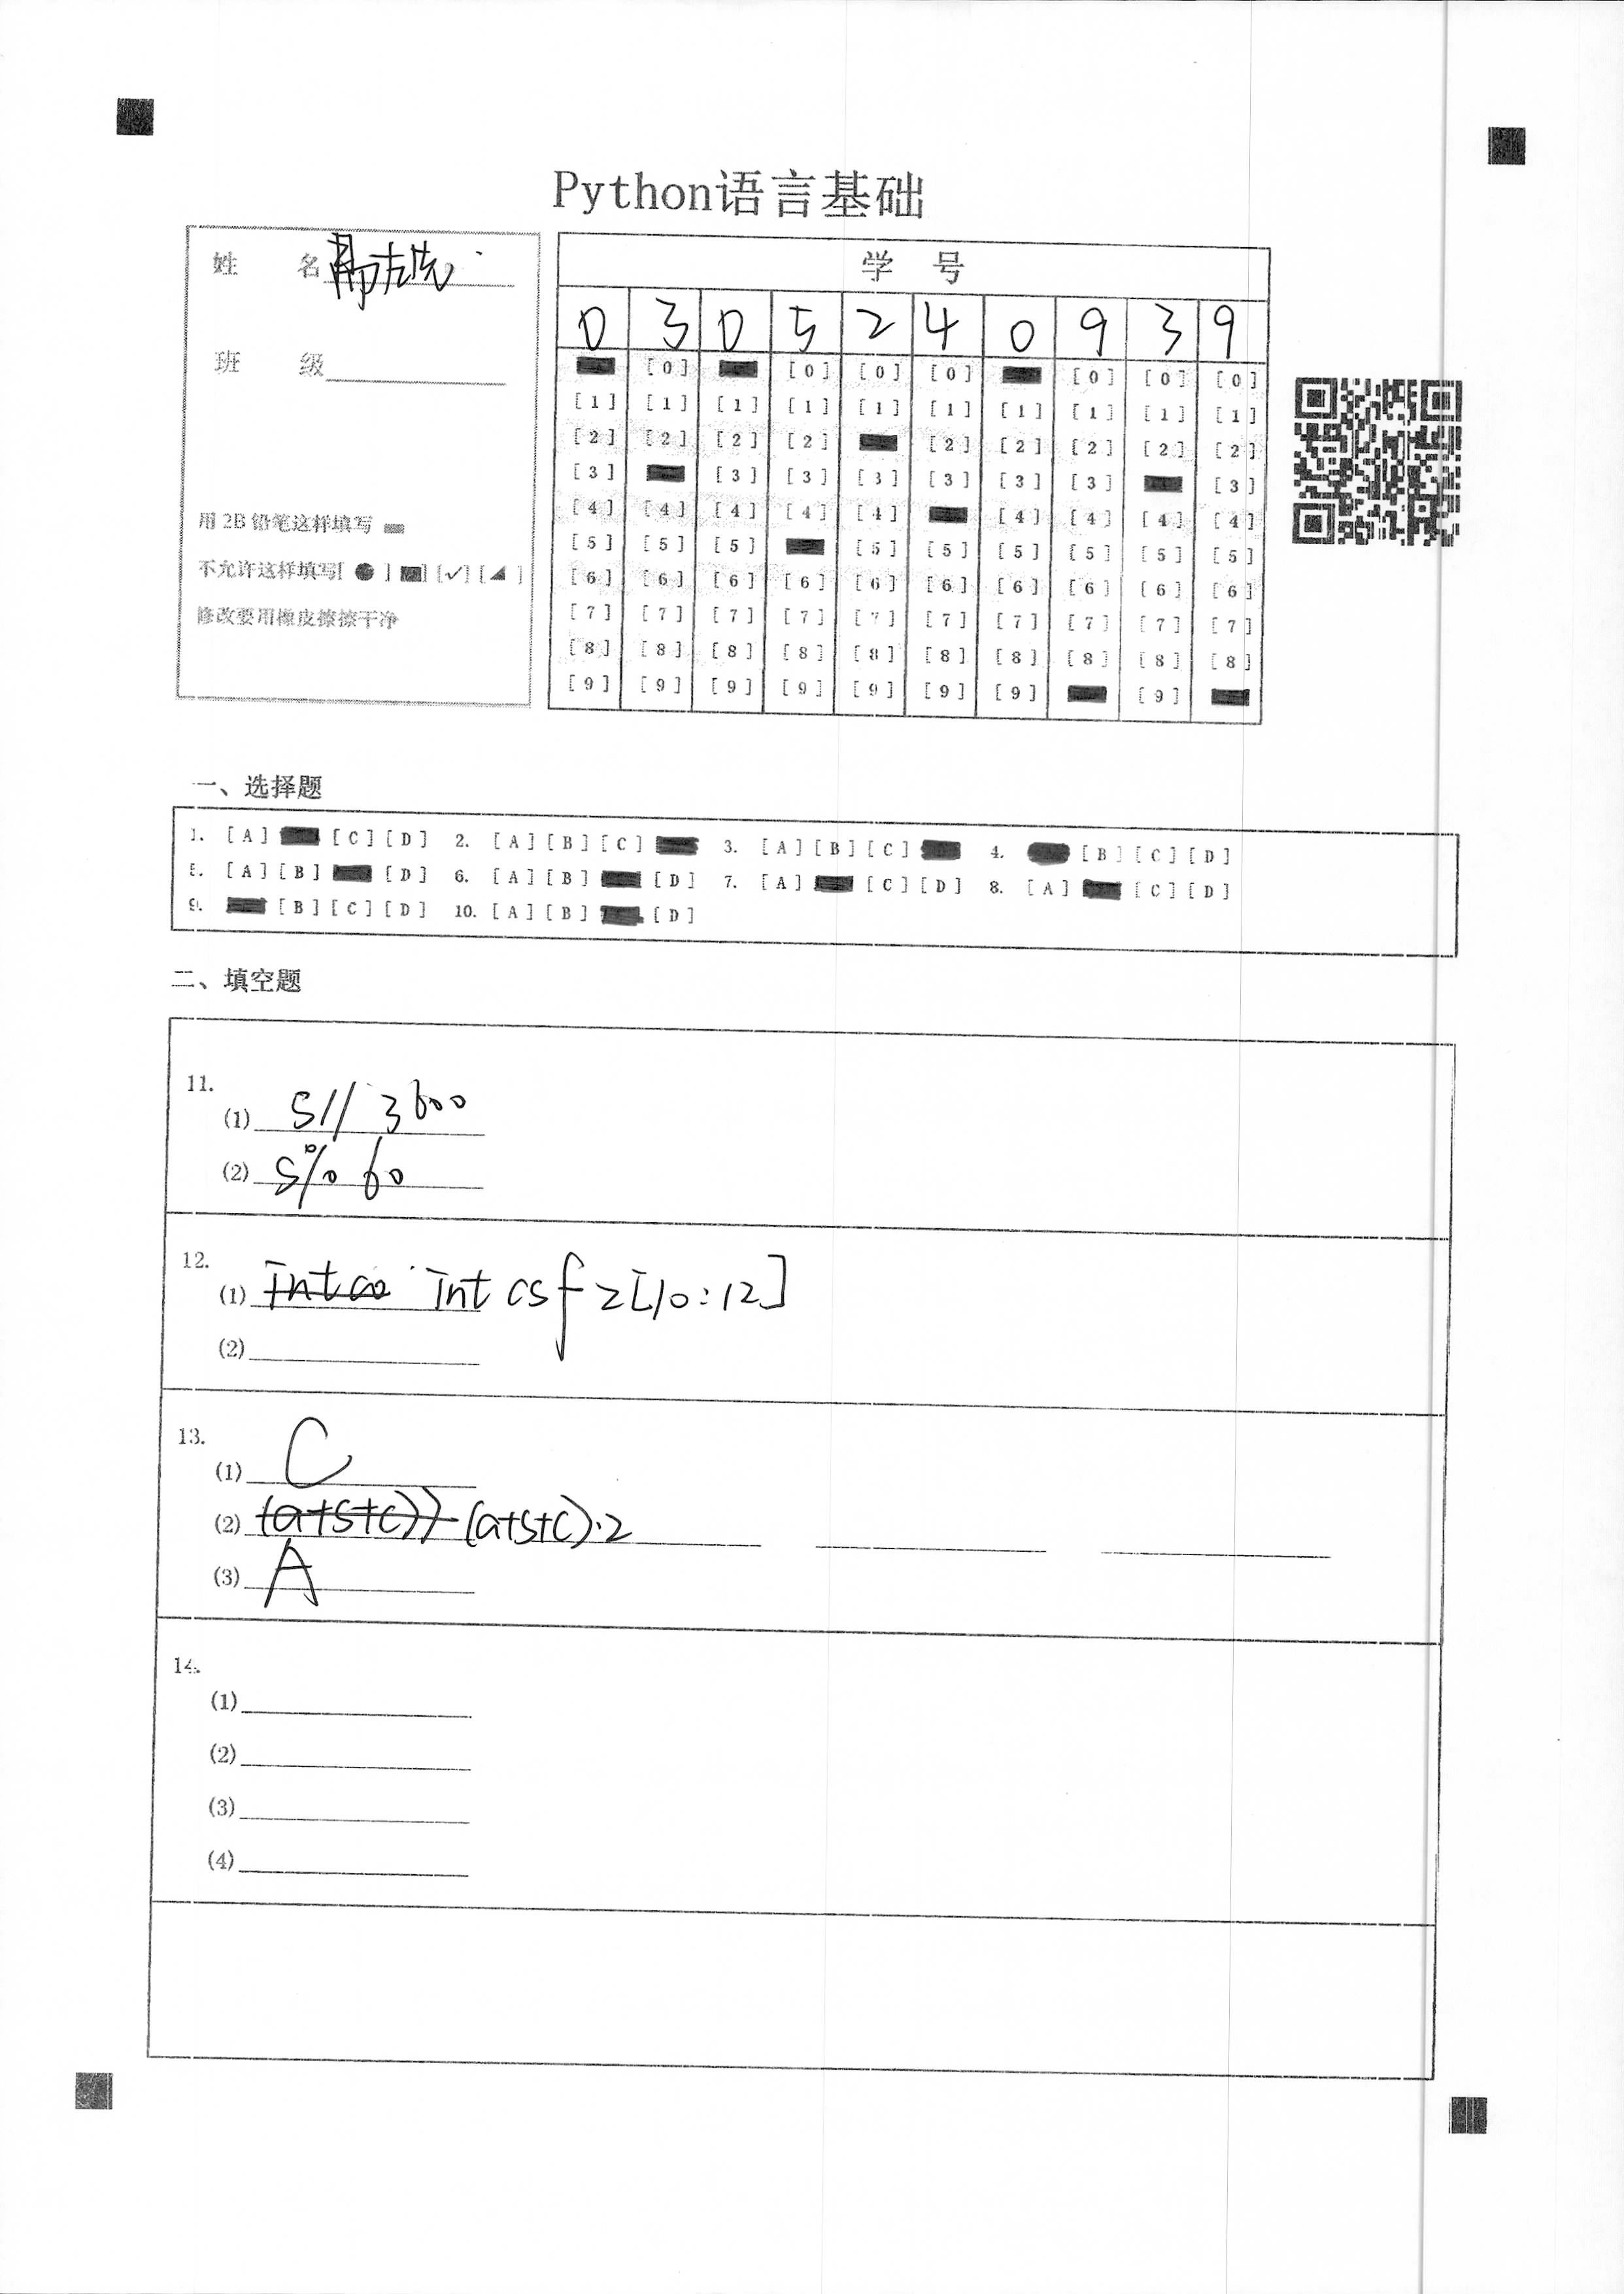 Python语言基础
姓 名
班 级
用 2B 铅笔这样填写
不允许这样填写[ ● ] [■] [✓] [◢ ]
修改要用橡皮擦擦干净
学 号
0 3 0 5 2 4 0 9 3 9
[0] [0] [0] [0] [0] [0] [0]
[1] [1] [1] [1] [1] [1] [1] [1] [1] [1]
[2] [2] [2] [2] [2] [2] [2] [2] [2]
[3] [3] [3] [3] [3] [3] [3] [3]
[4] [4] [4] [4] [4] [4] [4] [4] [4]
[5] [5] [5] [5] [5] [5] [5] [5] [5]
[6] [6] [6] [6] [6] [6] [6] [6] [6] [6]
[7] [7] [7] [7] [7] [7] [7] [7] [7] [7]
[8] [8] [8] [8] [8] [8] [8] [8] [8] [8]
[9] [9] [9] [9] [9] [9] [9] [9]
一、选择题
1. [A] [C] [D] 2. [A] [B] [C] 3. [A] [B] [C] 4. [B] [C] [D]
5. [A] [B] [D] 6. [A] [B] [D] 7. [A] [C] [D] 8. [A] [C] [D]
9. [B] [C] [D] 10. [A] [B] [D]
二、填空题
11.
(1) s// 3600
(2) s% 60
12.
(1) int csfz[10:12]
(2)
13.
(1) C
(2) (a+s+c)·2
(3) A
14.
(1)
(2)
(3)
(4)